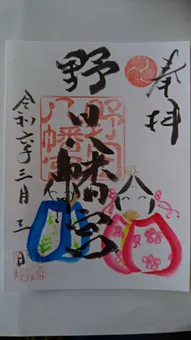 奉拝
野口八幡宮
野口
八幡宮
令和六年三月三日